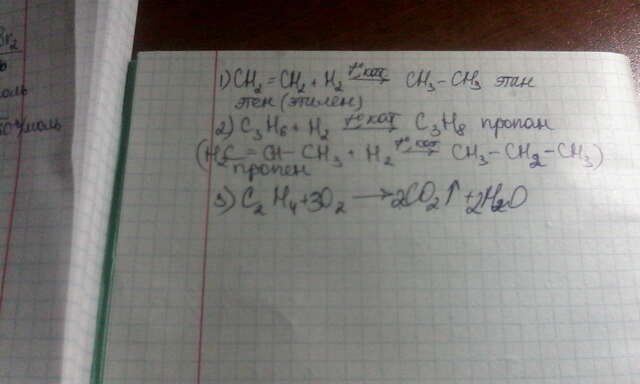 Br₂
моль
моль
1) CH₂=CH₂ + H₂ —t°, кат→ CH₃–CH₃ этан
этен (этилен)
2) C₃H₆ + H₂ —t° кат→ C₃H₈ пропан
(H₂C=CH–CH₃ + H₂ —t°, кат→ CH₃–CH₂–CH₃)
пропен
3) C₂H₄+3O₂ → 2CO₂↑+2H₂O